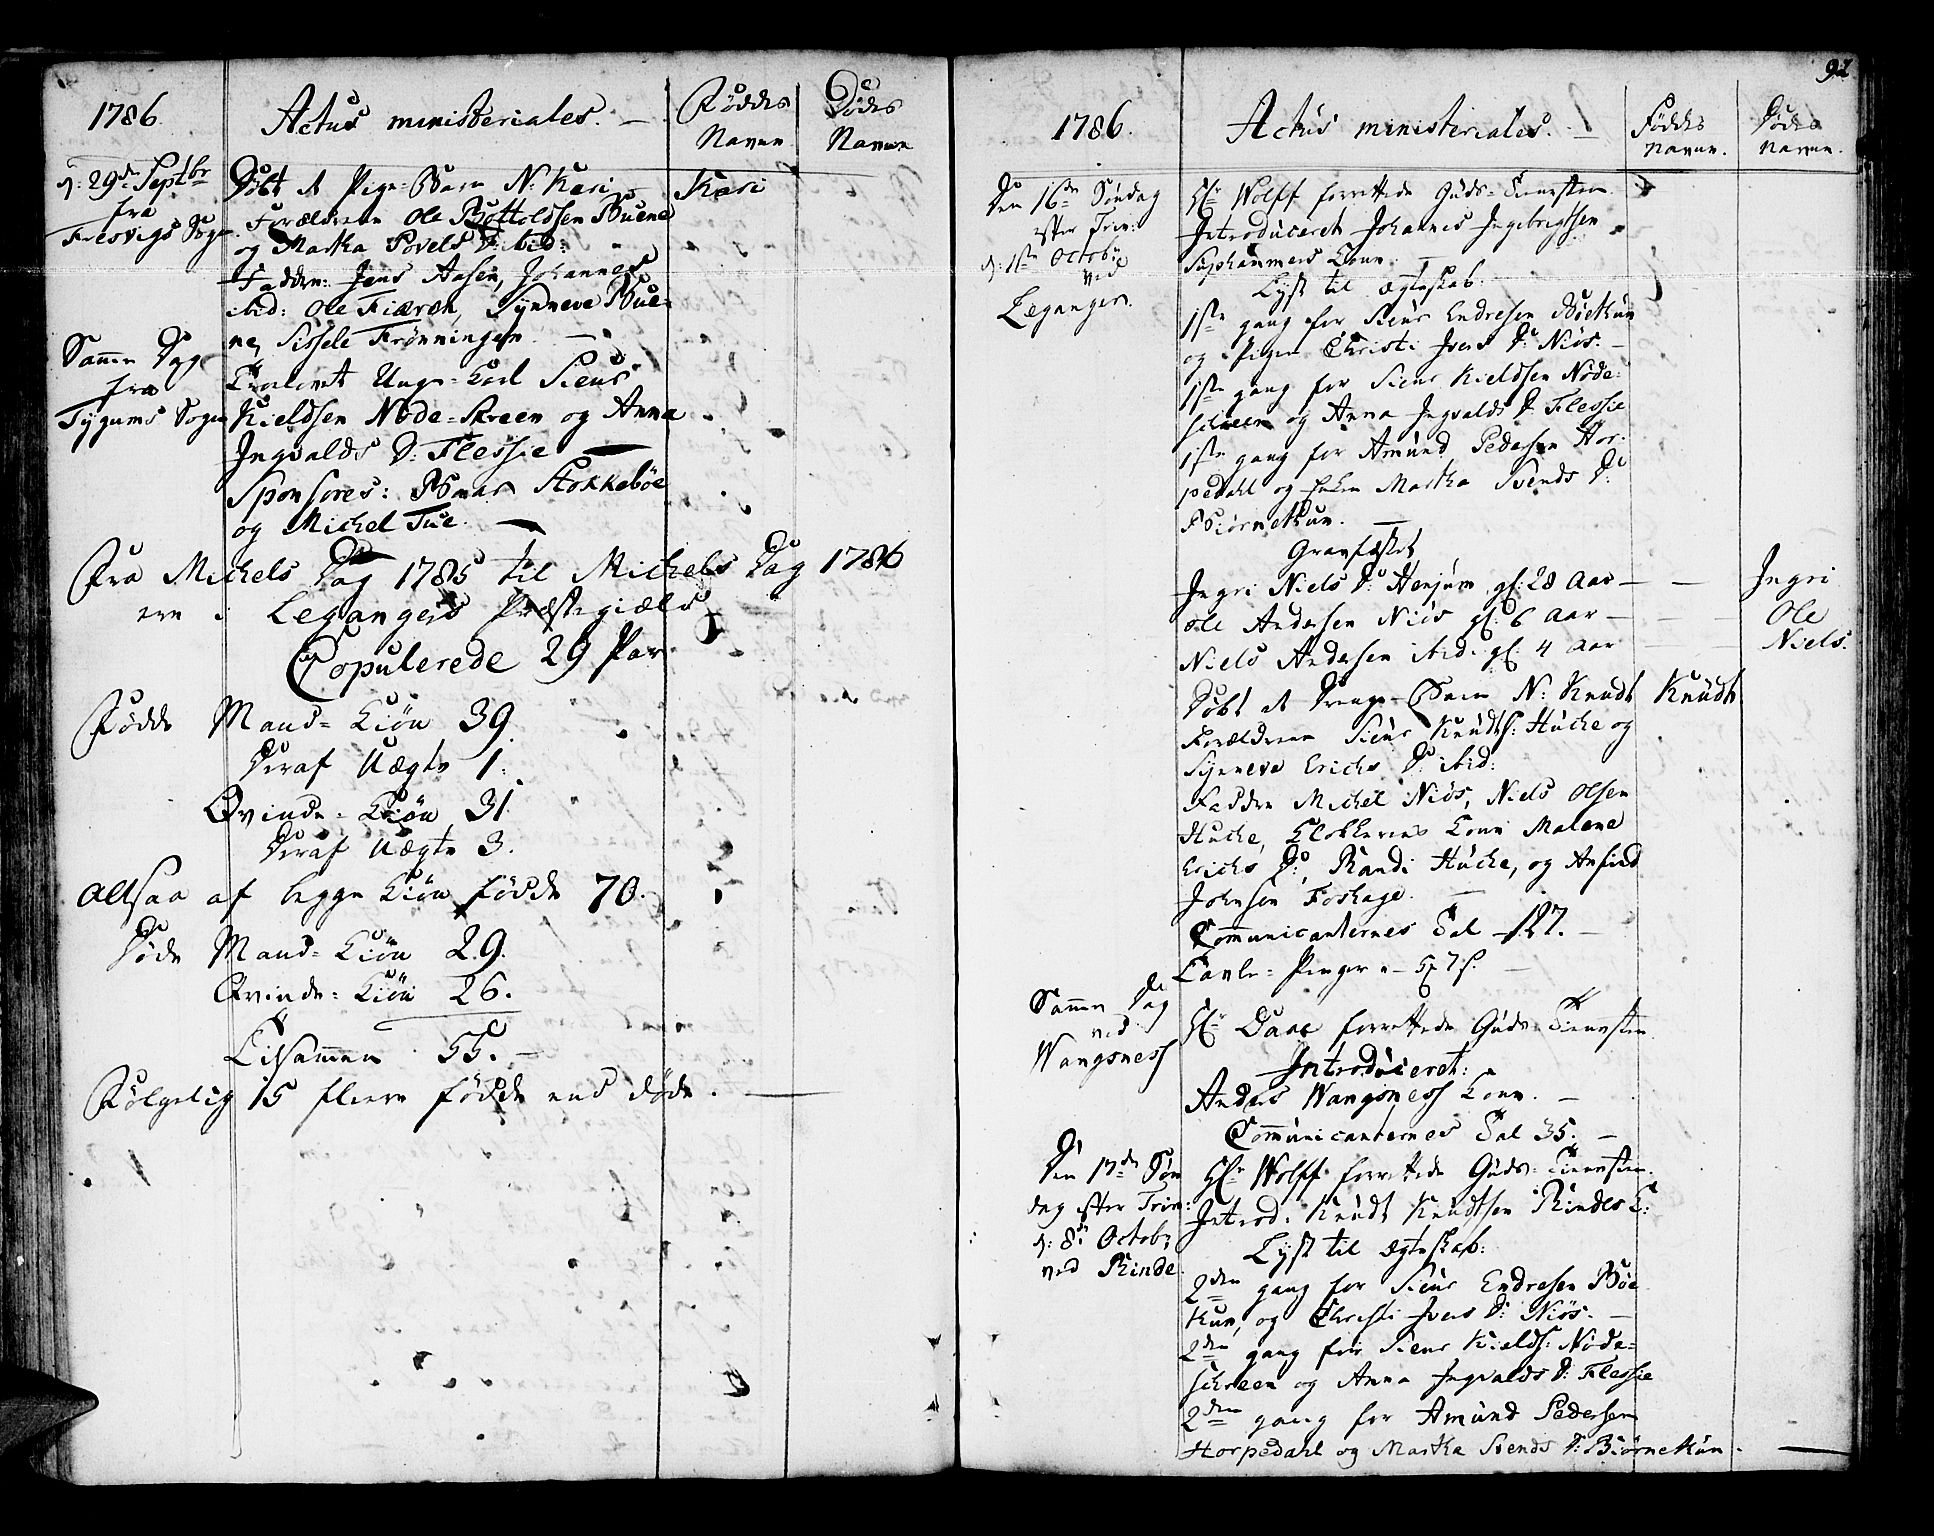 1786.
Actus ministeriales. —
Fødde Navne
Døde Navne
d: 29de Septbr
fra
Fresvigs Sogn
Døbt et Pige-Barn N: Kari
Kari
Forældrene Ole Bottoldsen Buene
og Martha Povels D: ibid:
Faddere: Jens Aasen, Johannes
ibid: Ole Fiæren, Synneve Bue-
ne, Sissele Frønningen. —
Samme Dag
fra
Tygums Sogn
Trolovet Unge-Karl Siur
Kieldsen Nøde-Skreen og Anna
Ingvalds D: Flessie —
Sponsores: Stokkebøe
og Michel Tue. —
Fra Michels Dag 1785 til Michels Dag 1786
ere i Leganger Præstegiæld
Copulerede 29 Par.
Fødde Mand-Kiøn 39.
Deraf Uægte 1.
Qvinde-Kiøn 31
Deraf Uægte 3.
Altsaa af begge Kiøn fødde 70.
Døde Mand-Kiøn 29.
Qvinde-Kiøn 26.
Tilsammen 55. —
Følgelig 15 fleere fødde end døde. —
92
1786.
Actus ministeriales. —
Føddes Navne.
Dødes Navne.
Den 16de Søndag
efter Trin:
d: 1ste Octobr
ved
Leganger.
Hr Wolff forrettede Guds-Tienesten.
Introduceret Johannes Ingebrigtsen
Suphammers Kone. —
Lyst til Ægteskab.
1ste gang for Siur Endresen Bøetkun
og Pigen Christi Ivers D: Niøs. —
1ste gang for Siur Kieldsen Nøde-
schreen og Anna Ingvalds D: Flessie
1ste gang for Amund Pedersen Hor-
pedahl og Enken Martha Svends D:
Biørnetkun. —
Gravfæstet
Ingri Niels D: Henjum gl: 28 Aar — — Ingri
Ole Andersen Niøs gl: 6 Aar — — — Ole
Niels Andersen ibid: gl: 4 Aar — — Niels.
Døbt et Drenge-Barn N: Knudt
Knudt
Forældrene Siur Knudts: Hucke og
Synneve Erichs D: ibid:
Faddere Michel Niøs, Niels Olsen
Hucke, Klokkerens Kone Malene
Erichs D:, Randi Hucke, og Anfind
Johnsen Foshage. —
Communicanternes Tal 127. —
Tavle-Penge
Samme Dag
ved
Wangsness
Hr Daae forrettede Guds-Tienesten
Introduceret:
Anders Wangsness Kone. —
Communicanternes Tal 35. —
Den 17de Søn
dag efter Trin:
d: 8de Octobr
ved Rinde.
Hr Wolff forrettede Guds-Tienesten.
Introd: Knudt Knudtsen Rindes K:
Lyst til Ægteskab:
2den gang for Siur Endresen Bøe
tkun, og Christi Ivers D: Niøs. —
2den gang for Siur Kields: Nøde-
schreen og Anna Ingvalds D: Flessie
2den gang for Amund Pedersen
Horpedahl og Martha Svends D: Biørnetkun. —